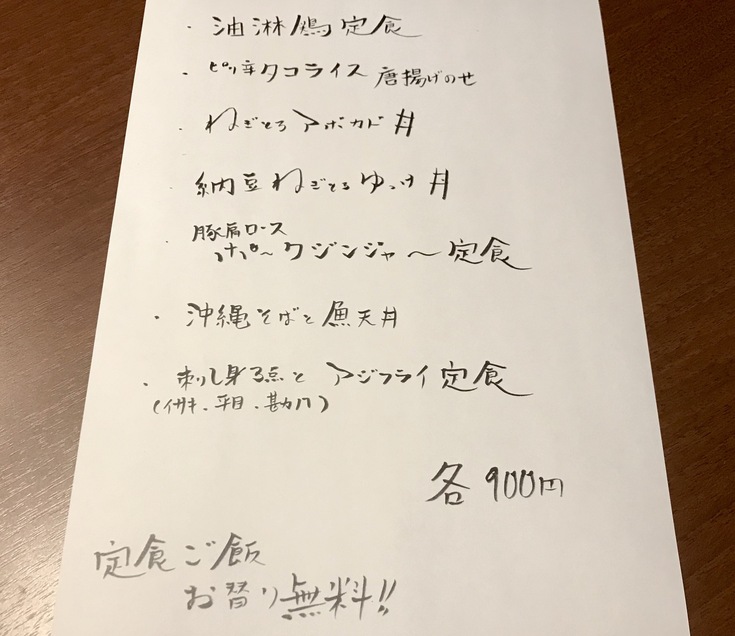 ・油淋鶏定食
・ピリ辛タコライス 唐揚げのせ
・ねぎとろアボカド丼
・納豆ねぎとろゆっけ丼
・豚肩ロース
ポ〜クジンジャ〜定食
・沖縄そばと魚天丼
・刺し身3点とアジフライ定食
(イサキ.平目.勘八)
各900円
定食ご飯
お替り無料!!